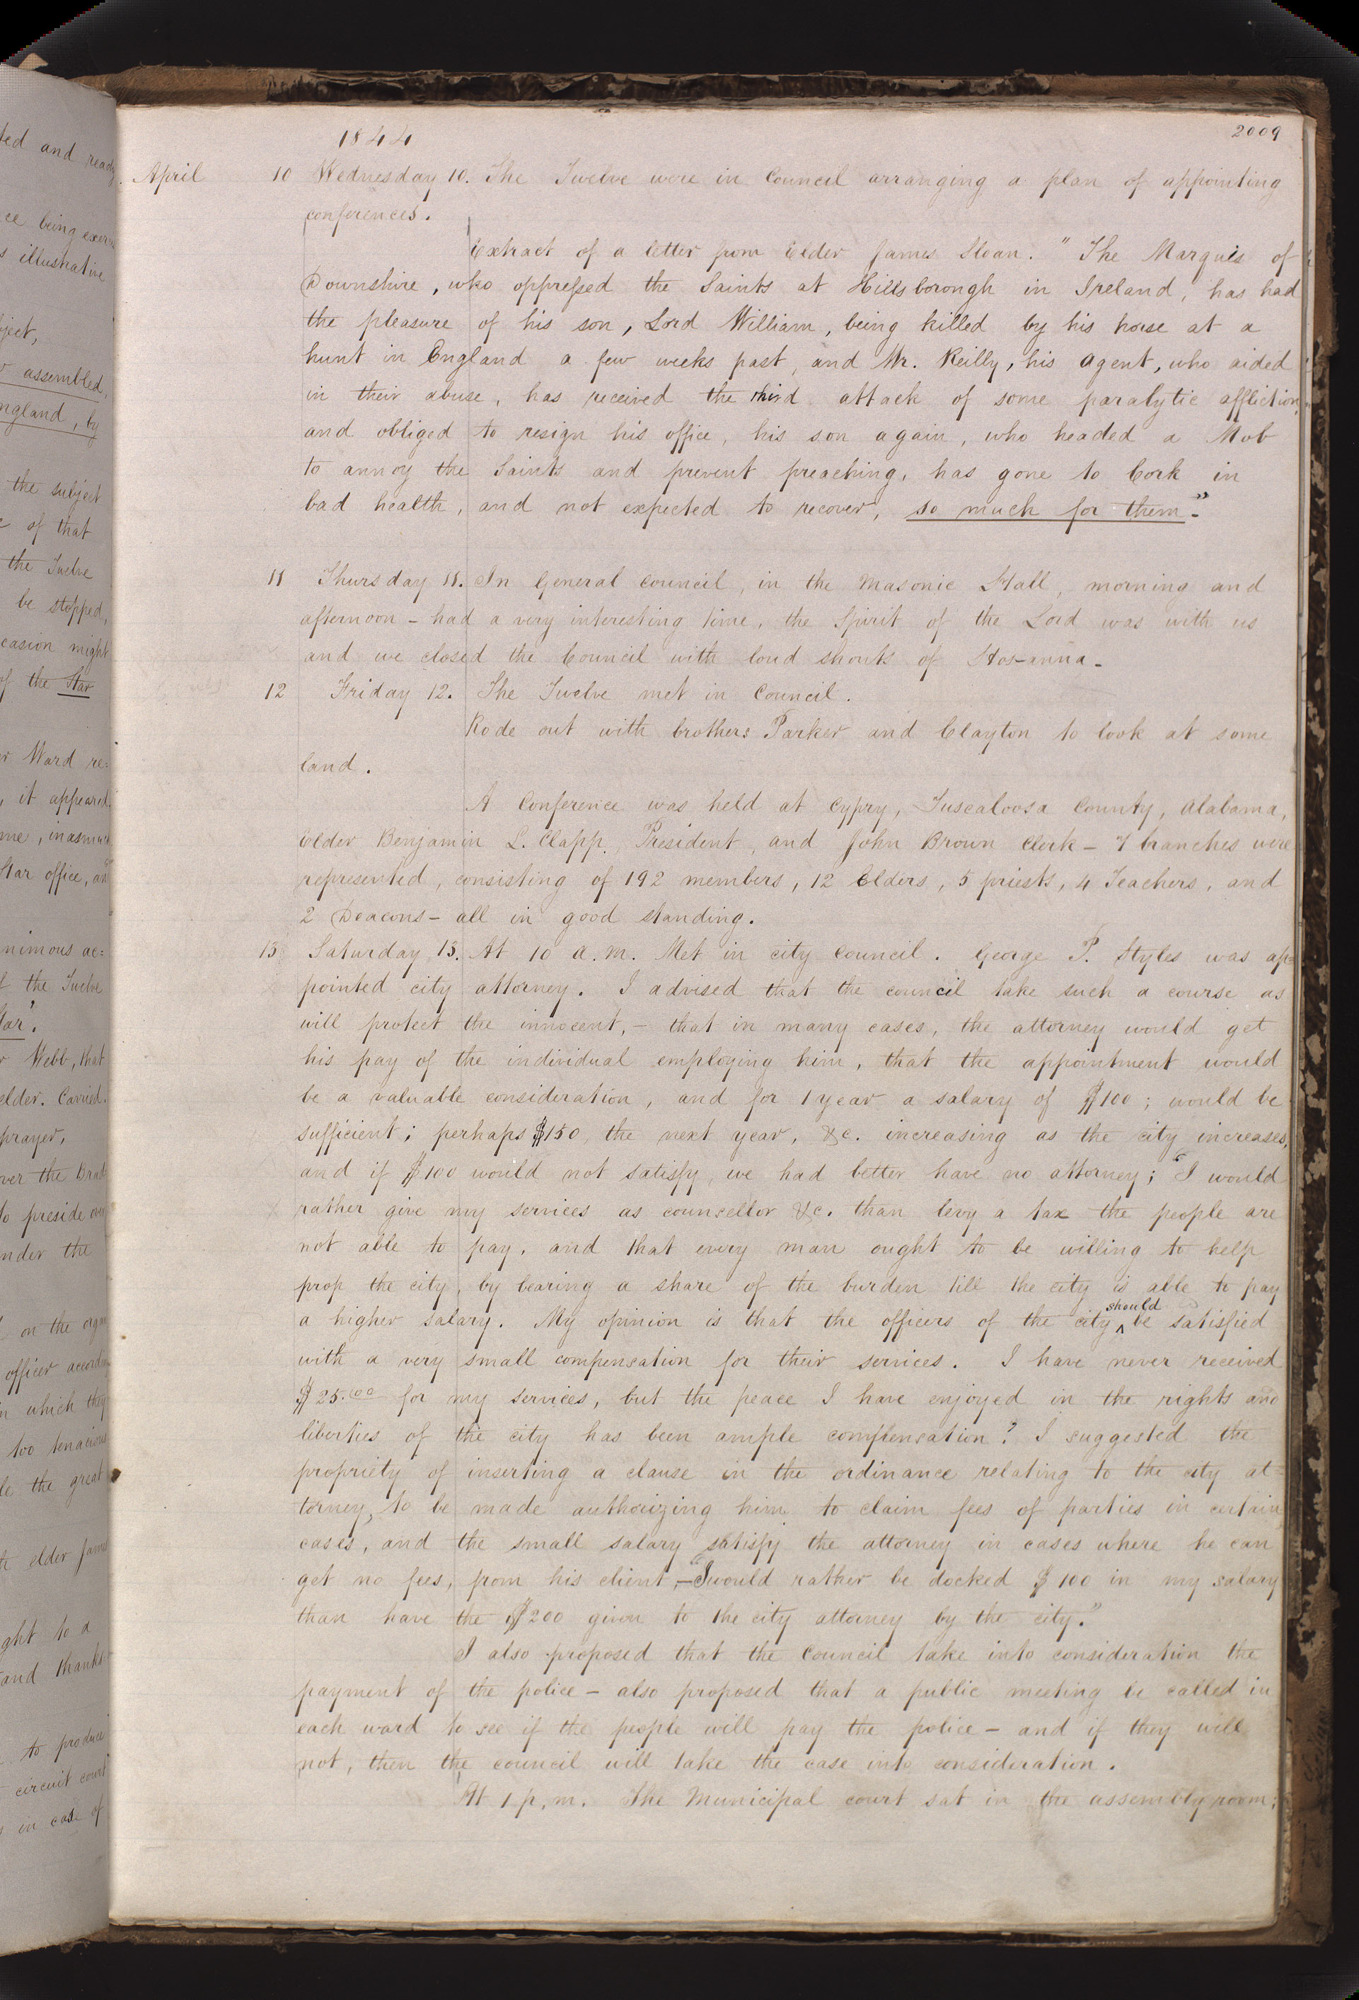 1844
2009
April 10 Wednesday 10. The Twelve were in Council arranging a plan of appointing
conferences.
Extract of a letter from Elder James Sloan. "The Marquis of
Downshire, who oppressed the Saints at Hillsborough in Ireland, has had
the pleasure of his son, Lord William, being killed by his horse at a
hunt in England a few weeks past, and Mr. Reilly, his Agent, who aided
in their abuse, has received the third attack of some paralytic affliction,
and obliged to resign his office, his son again, who headed a Mob
to annoy the Saints and prevent preaching, has gone to Cork in
bad health, and not expected to recover, so much for them."
11 Thursday 11. In General Council, in the Masonic Hall, morning and
afternoon - had a very interesting time, the Spirit of the Lord was with us
and we closed the Council with loud shouts of Hosanna.
12 Friday 12. The Twelve met in Council.
Rode out with brothers Parker and Clayton to look at some
land.
A Conference was held at Cypry, Tuscaloosa County, Alabama,
elder Benjamin L. Clapp, President, and John Brown Clerk - 7 branches were
represented, consisting of 192 members, 12 Elders, 5 priests, 4 Teachers, and
2 Deacons - all in good standing.
13 Saturday 13. At 10 a.m. Met in city council. George P. Styles was ap=
pointed city attorney. I advised that the council take such a course as
will protect the innocent, - that in many cases, the attorney would get
his pay of the individual employing him, that the appointment would
be a valuable consideration, and for 1 year a salary of $100; would be
sufficient; perhaps $150, the next year, &c. increasing as the city increases,
and if $100 would not satisfy, we had better have no attorney; "I would
rather give my services as councellor &c. than levy a tax the people are
not able to pay, and that every man ought to be willing to help
prop the city, by bearing a share of the burden till the city is able to pay
a higher salary. My opinion is that the officers of the city should be satisfied
with a very small compensation for their services. I have never received
$25.00 for my services, but the peace I have enjoyed in the rights and
liberties of the city has been ample compensation? I suggested the
propriety of inserting a clause in the ordinance relating to the city at=
torney, to be made authorizing him to claim fees of parties in certain
cases, and the small salary satisfy the attorney in cases where he can
get no fees, from his client, - "I would rather be docked $100 in my salary
than have the $200 given to the city attorney by the city."
I also proposed that the Council take into consideration the
payment of the police - also proposed that a public meeting be called in
each ward to see if the people will pay the police - and if they will
not, then the council will take the case into consideration.
At 1 p.m. The Municipal court sat in the assembly room;
ted and ready
ce being exer
s illustrative
ject,
assembled,
ngland, by
the subject
of that
the Twelve
be stopped,
casion might
of the Star
Ward re=
, it appeared
me, inasmuch
Star office, an
nimous ac=
f the Twelve
tar'.
r Webb, that
elder. Carried.
prayer,
ver the Bra
to preside over
nder the
on the orga
officer accordi
n which they
too tenacious
le the great
elder James
ght to a
and thanks
to produce
circuit court
in case of